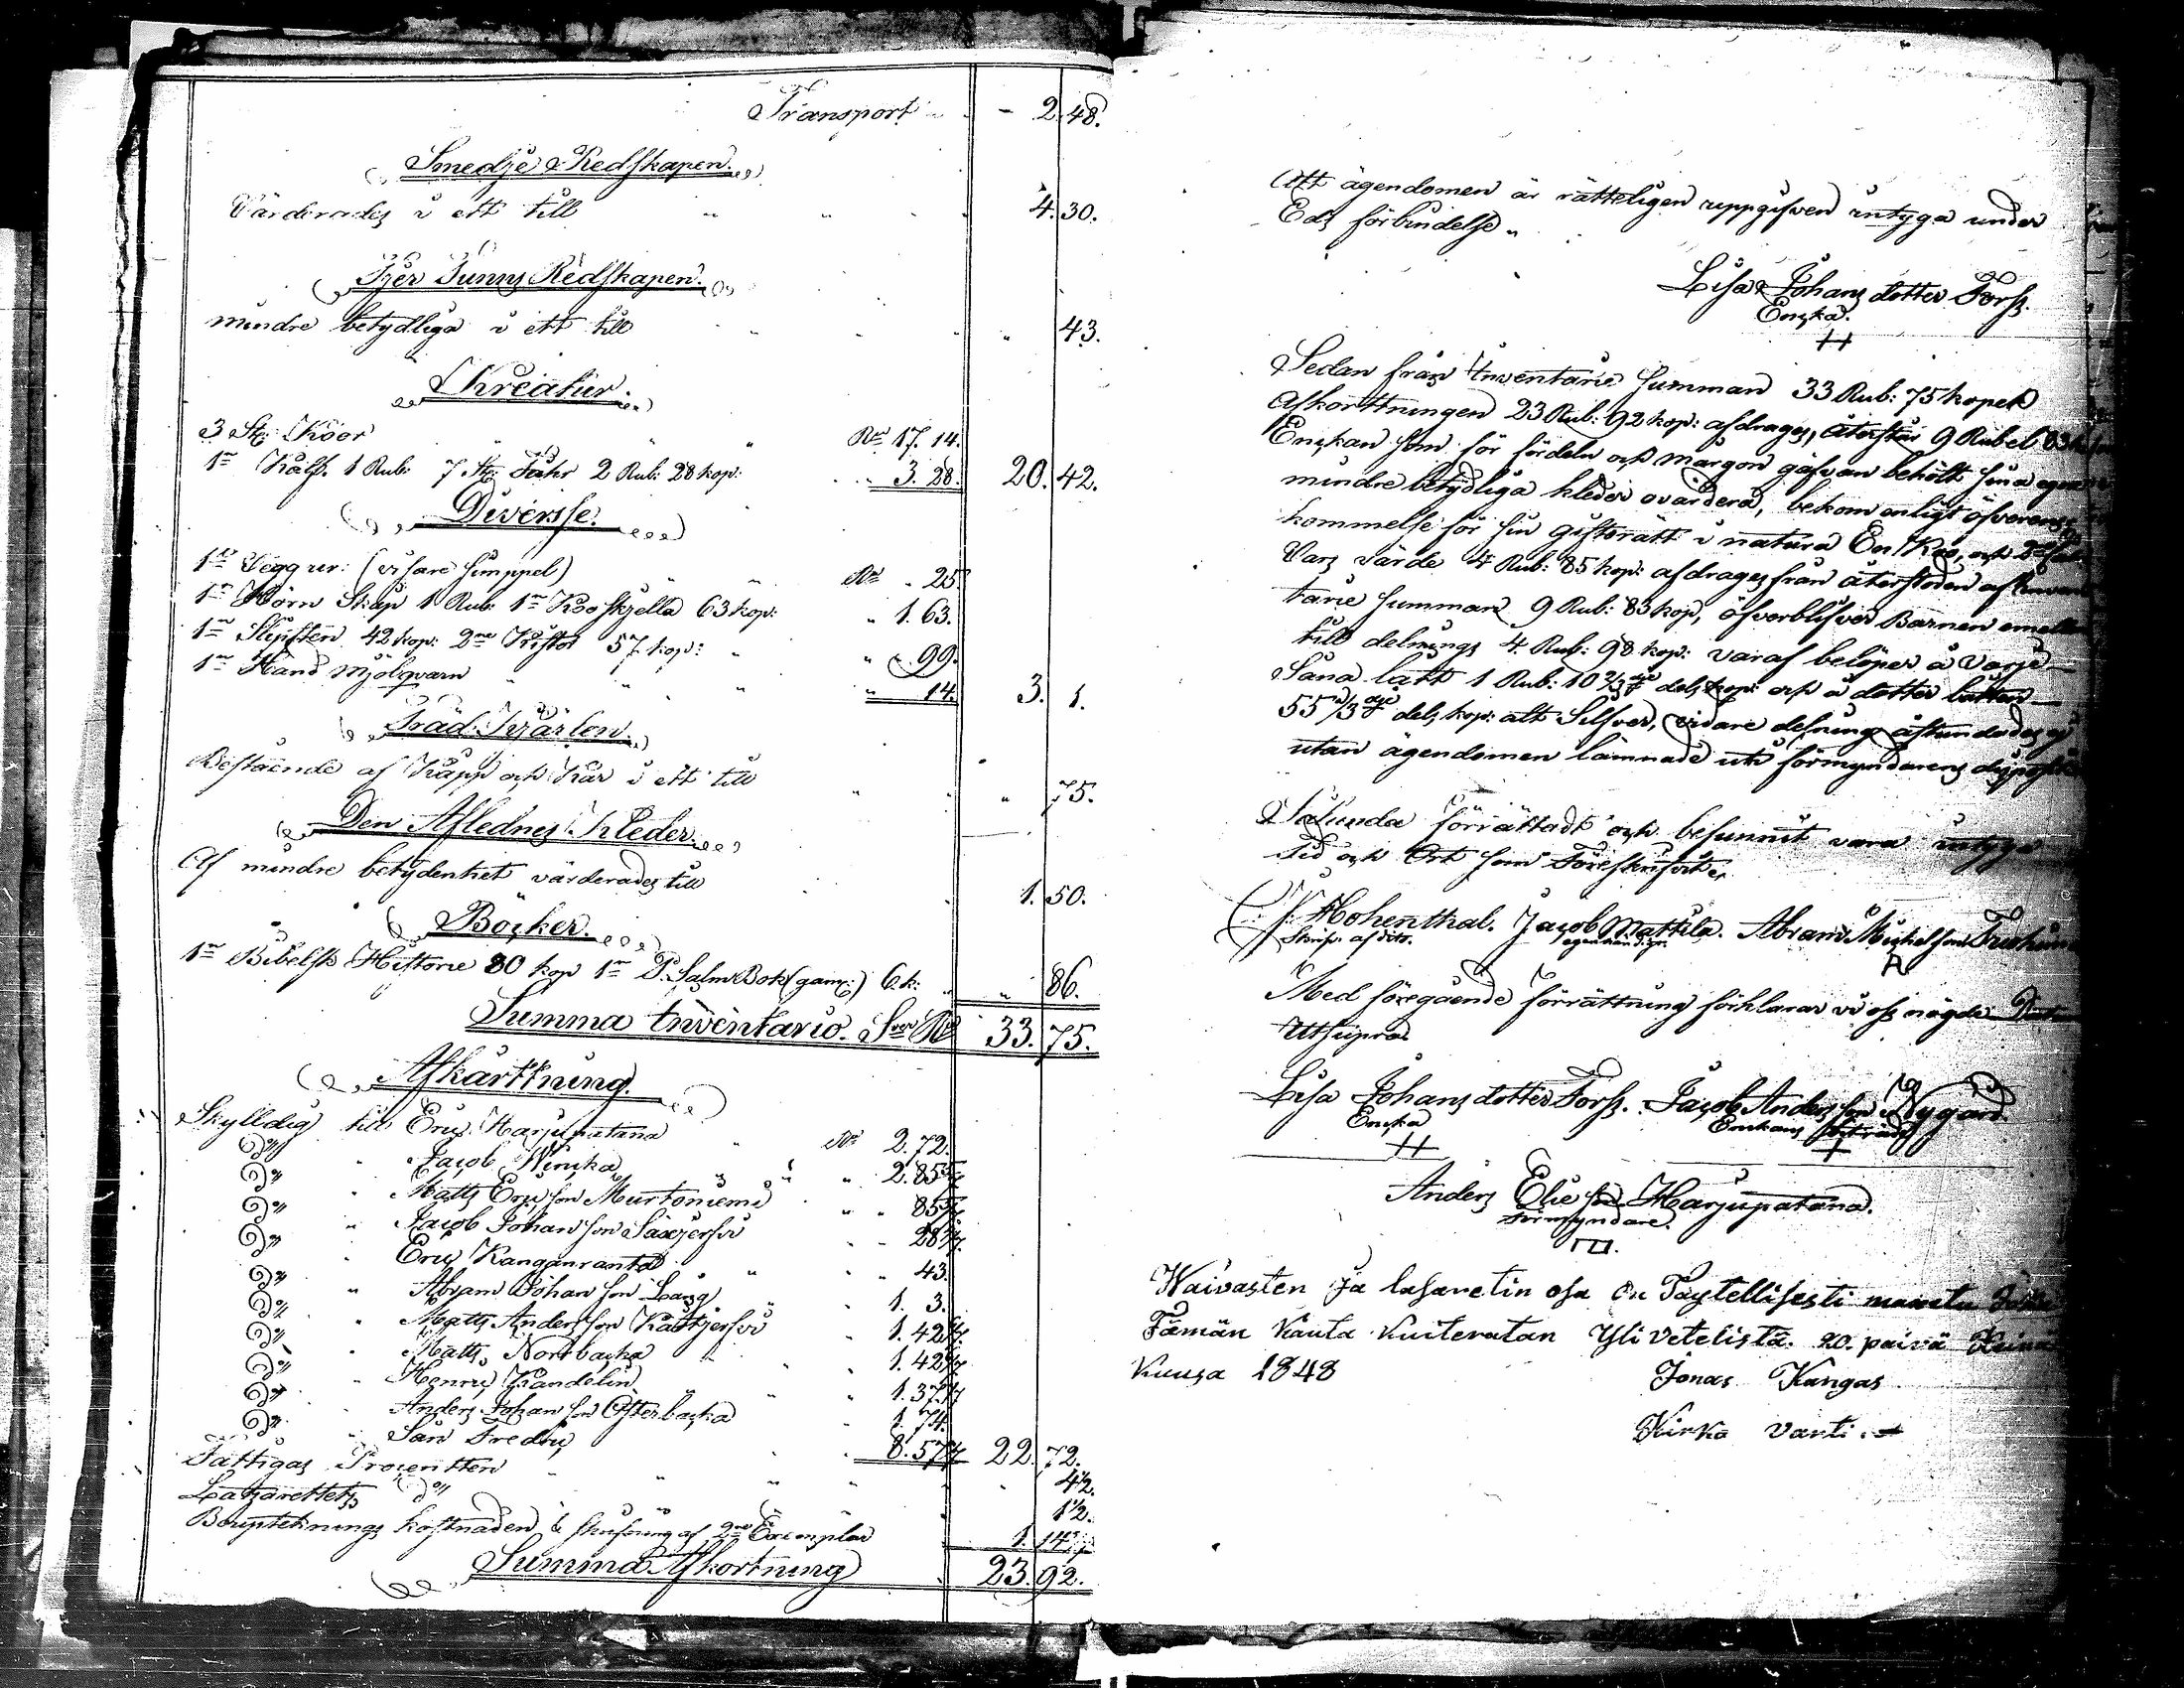 Transport 2. 48.
Smedje Redskapen.
Värderades i ett till 4. 30.
Redskapen.
mindre betydliga i ett till 43.
Kreatur.
3 St: Koor Rr 17. 14.
1 Kalf. 1 Rub: 7 St: Fåhr 2 Rub: 28 kop: 3. 28. 20. 42.
Diverse.
1 Vegg ur: (visare simppel) Rr 25.
1 Hörn Skåp 1 Rub: 1 Kooskjella 63 kop: 1. 63.
1 Slipsten 42 kop: 2 57 kop: 99.
1 Hand Mjölqvarn 14. 3. 1.
Träd Kjärlen.
Bestående af Käpp och Kar i ett till 75.
Den Aflednes Kleder.
Af mindre betydenhet värderades till 1. 50.
Böcker.
1 Bibelsk Historie 80 kop 1 PsalmBok (gam:) 6 k: 86.
Summa Inventario. 33. 75.
Afkårttning.
Skylldig till Eric Harjupatana Rr 2. 72.
D:o Jacob Wircka 2. 85
D:o Matts Ericsson Murtoniemi 85
D:o Jacob Johansson 28
D:o Eric Kanganranta 43.
D:o Abram Johansson Lång 1. 3.
D:o Matts Andersson 1. 42
D:o Matts Norrbacka 1. 42
D:o Henric Kandelin 1. 37
D:o Anders Johansson Österbacka 1. 74.
D:o Fredric 8. 57 22. 72.
Fattigas Procentten 4 1/2.
Latzarettets D:o 1 1/2.
Boupteknings kostnaden & skrifning af 2 Exemplar 1. 14
Summa Afkortning 23. 92.
Att ägendomen är rätteligen uppgifven intyga under
Eds förbindelse
Lisa Johans dotter Forss.
Encka.
Sedan från Inventarie Summan 33 Rub: 75 kopek
Afkorttningen 23 Rub: 92 kop: afdrages, återstår 9 Rubel 83
Enckan som för fördeln och margon gåfvan behölt sina egna
mindre betydliga kleder ovärdera, bekom enligt öfverens
kommelse för sin giftorätt i natura En Koo, och 2
Vars värde 4 Rub: 85 kop: afdrages från återstoden af Inven
tarie Summan 9 Rub: 83 kop, öfverblifver Barnen emellan
till delnings 4 Rub: 98 kop: varaf belöper å varje
Sona latt 1 Rub: 10 2/3 dels kop: och å dotter latten
55 1/3 dels kop: alt Silfver, vidare delning åstundades ej
utan ägendomen lämnade uti förmyndarens
Sålunda förrättadt och befunnit vara intyga
tid och Ort som Föreskrifvit
Hohenthal. Jacob Mattila. Abram Michelsson
Skrif. af ditr. egenhändigt.
Med föregående förrättning förklarar vi oss nögde
Utsupra
Lisa Johans dotter Forss. Jacob Andersson Nygård.
Encka Enckans
Anders Eliesson Harjupatana.
förmyndare.
Waivasten Ja lasaretin osa On Taytellisesti maxetu
Tämän Kauta Kuiteratan Yli Vetelistä. 20. paivä Heinä
Kuusa 1848
Jonas Kangas
Kirko Varti.